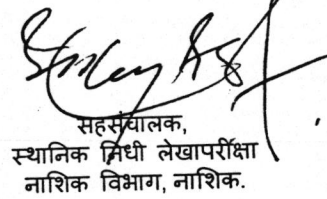 सहसंचालक,
स्थानिक निधी लेखापरीक्षा
नाशिक विभाग, नाशिक.